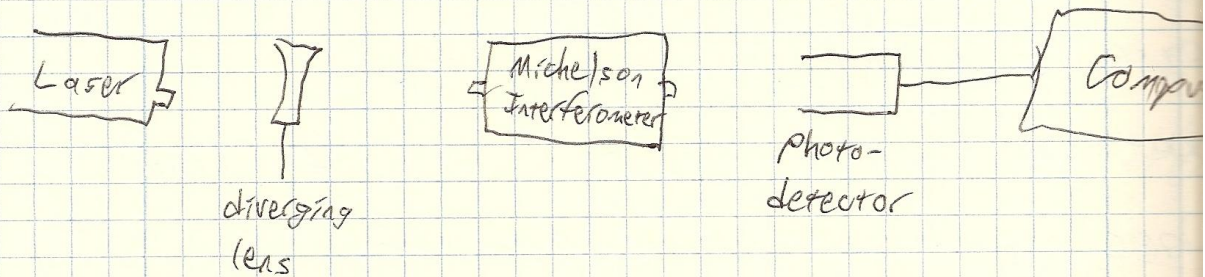 Laser
diverging
lens
Michelson
Interferometer
Photo-
detector
Compu